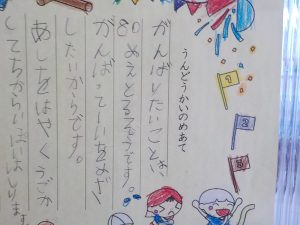 うんどうかいのめあて
がんばりたいことは、
80めえとるそうです。
がんばって一いをめざ
したいからです。
あしをはやくうごか
してちからいっぱいはしります
1
2
3